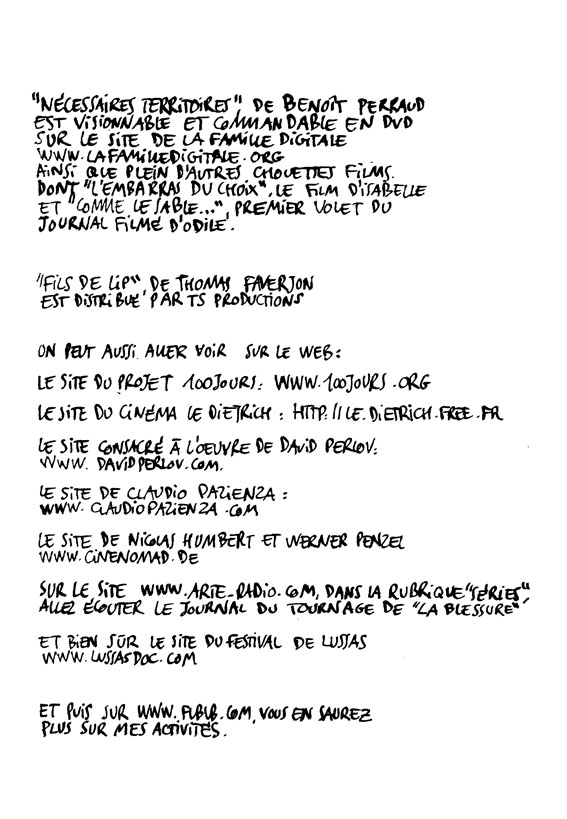 "NÉCESSAIRES TERRITOIRES", DE BENOÎT PERRAUD
EST VISIONNABLE ET COMMANDABLE EN DVD
SUR LE SITE DE LA FAMILLE DIGITALE
WWW.LAFAMILLEDIGITALE.ORG
AINSI QUE PLEIN D'AUTRES CHOUETTES FILMS.
DONT "L'EMBARRAS DU CHOIX", LE FILM D'ISABELLE
ET "COMME LE SABLE...", PREMIER VOLET DU
JOURNAL FILMÉ D'ODILE.
"FILS DE LIP", DE THOMAS FAVERJON
EST DISTRIBUÉ PAR TS PRODUCTIONS
ON PEUT AUSSI ALLER VOIR SUR LE WEB:
LE SITE DU PROJET 100JOURS: WWW.100JOURS.ORG
LE SITE DU CINÉMA LE DIETRICH: HTTP://LE.DIETRICH.FREE.FR
LE SITE CONSACRÉ À L'OEUVRE DE DAVID PERLOV:
WWW.DAVIDPERLOV.COM.
LE SITE DE CLAUDIO PAZIENZA:
WWW.CLAUDIOPAZIENZA.COM
LE SITE DE NICOLAS HUMBERT ET WERNER PENZEL
WWW.CINENOMAD.DE
SUR LE SITE WWW.ARTE-RADIO.COM, DANS LA RUBRIQUE "SÉRIES",
ALLEZ ÉCOUTER LE JOURNAL DU TOURNAGE DE "LA BLESSURE"
ET BIEN SÛR LE SITE DU FESTIVAL DE LUSSAS
WWW.LUSSASDOC.COM
ET PUIS SUR WWW.FLBLB.COM, VOUS EN SAUREZ
PLUS SUR MES ACTIVITÉS.